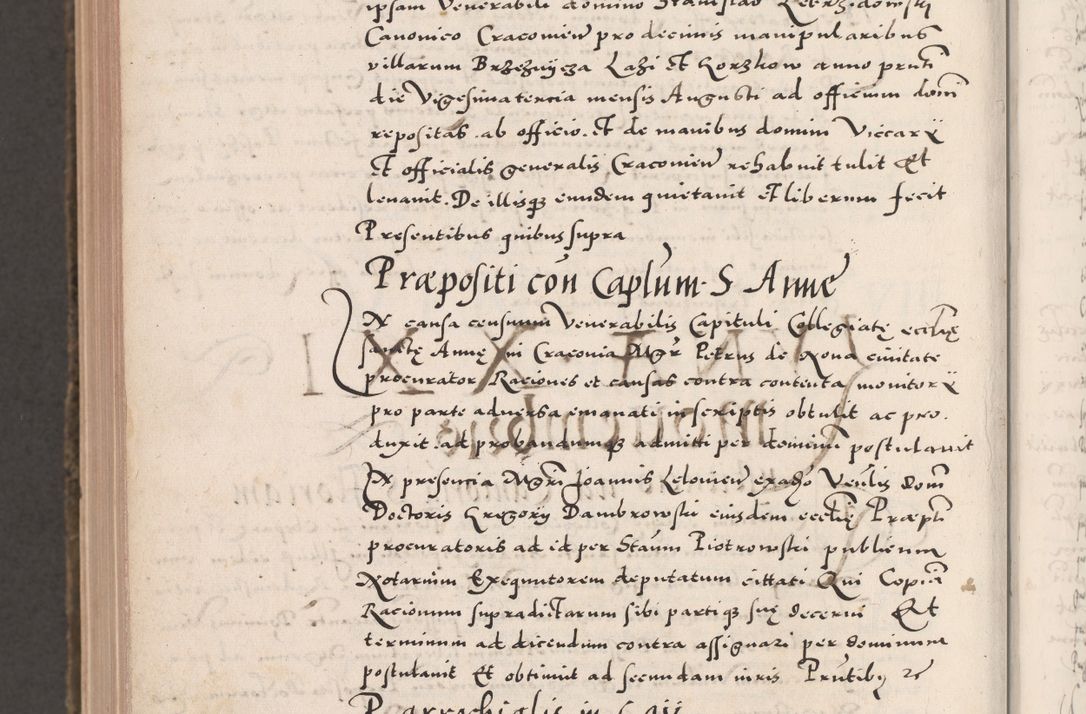 ipsam Venerabili domino Stanislao
Canonico Cracovien pro decimis manipularibus
villarum Lazi Et Korzkow anno prnti
die Vigesimatercia mensis Augusti ad officium domi
repositas ab officio Et de manibus domini Viccarÿ
Et officialis generalis Cracovien rehabuit tulit Et
levavit. De illisqz eundem quietavit Et liberum fecit
Presentibus quibus supra
Præpositi con Caplum S Annæ
In causa censuum Venerabilis Capituli Collegiatę ecclię
sanctę Annę in Cracovia Mgr Petrus de Nova civitate
procurator Raciones et causas contra contenta monitorÿ
pro parte adversa emanati in scriptis obtulit ac pro
duxit ad probandumqz admitti per dominum postulavit
In presencia Mgri Joannis Lelovien Venlis dom
Doctoris Gregorÿ Dambrowski eiusdem ecclię Præpti
procuratoris ad id per Staum Piotrowski publicum
Notarium Exequutorem deputatum cittati Qui Copiam
Racionum supradictarum sibi partiqz suę decerni Et
terminum ad dicendum contra assignari per dominum
postulavit Et obtinuit ad secundam iuris Prntibq
Parrochialis in